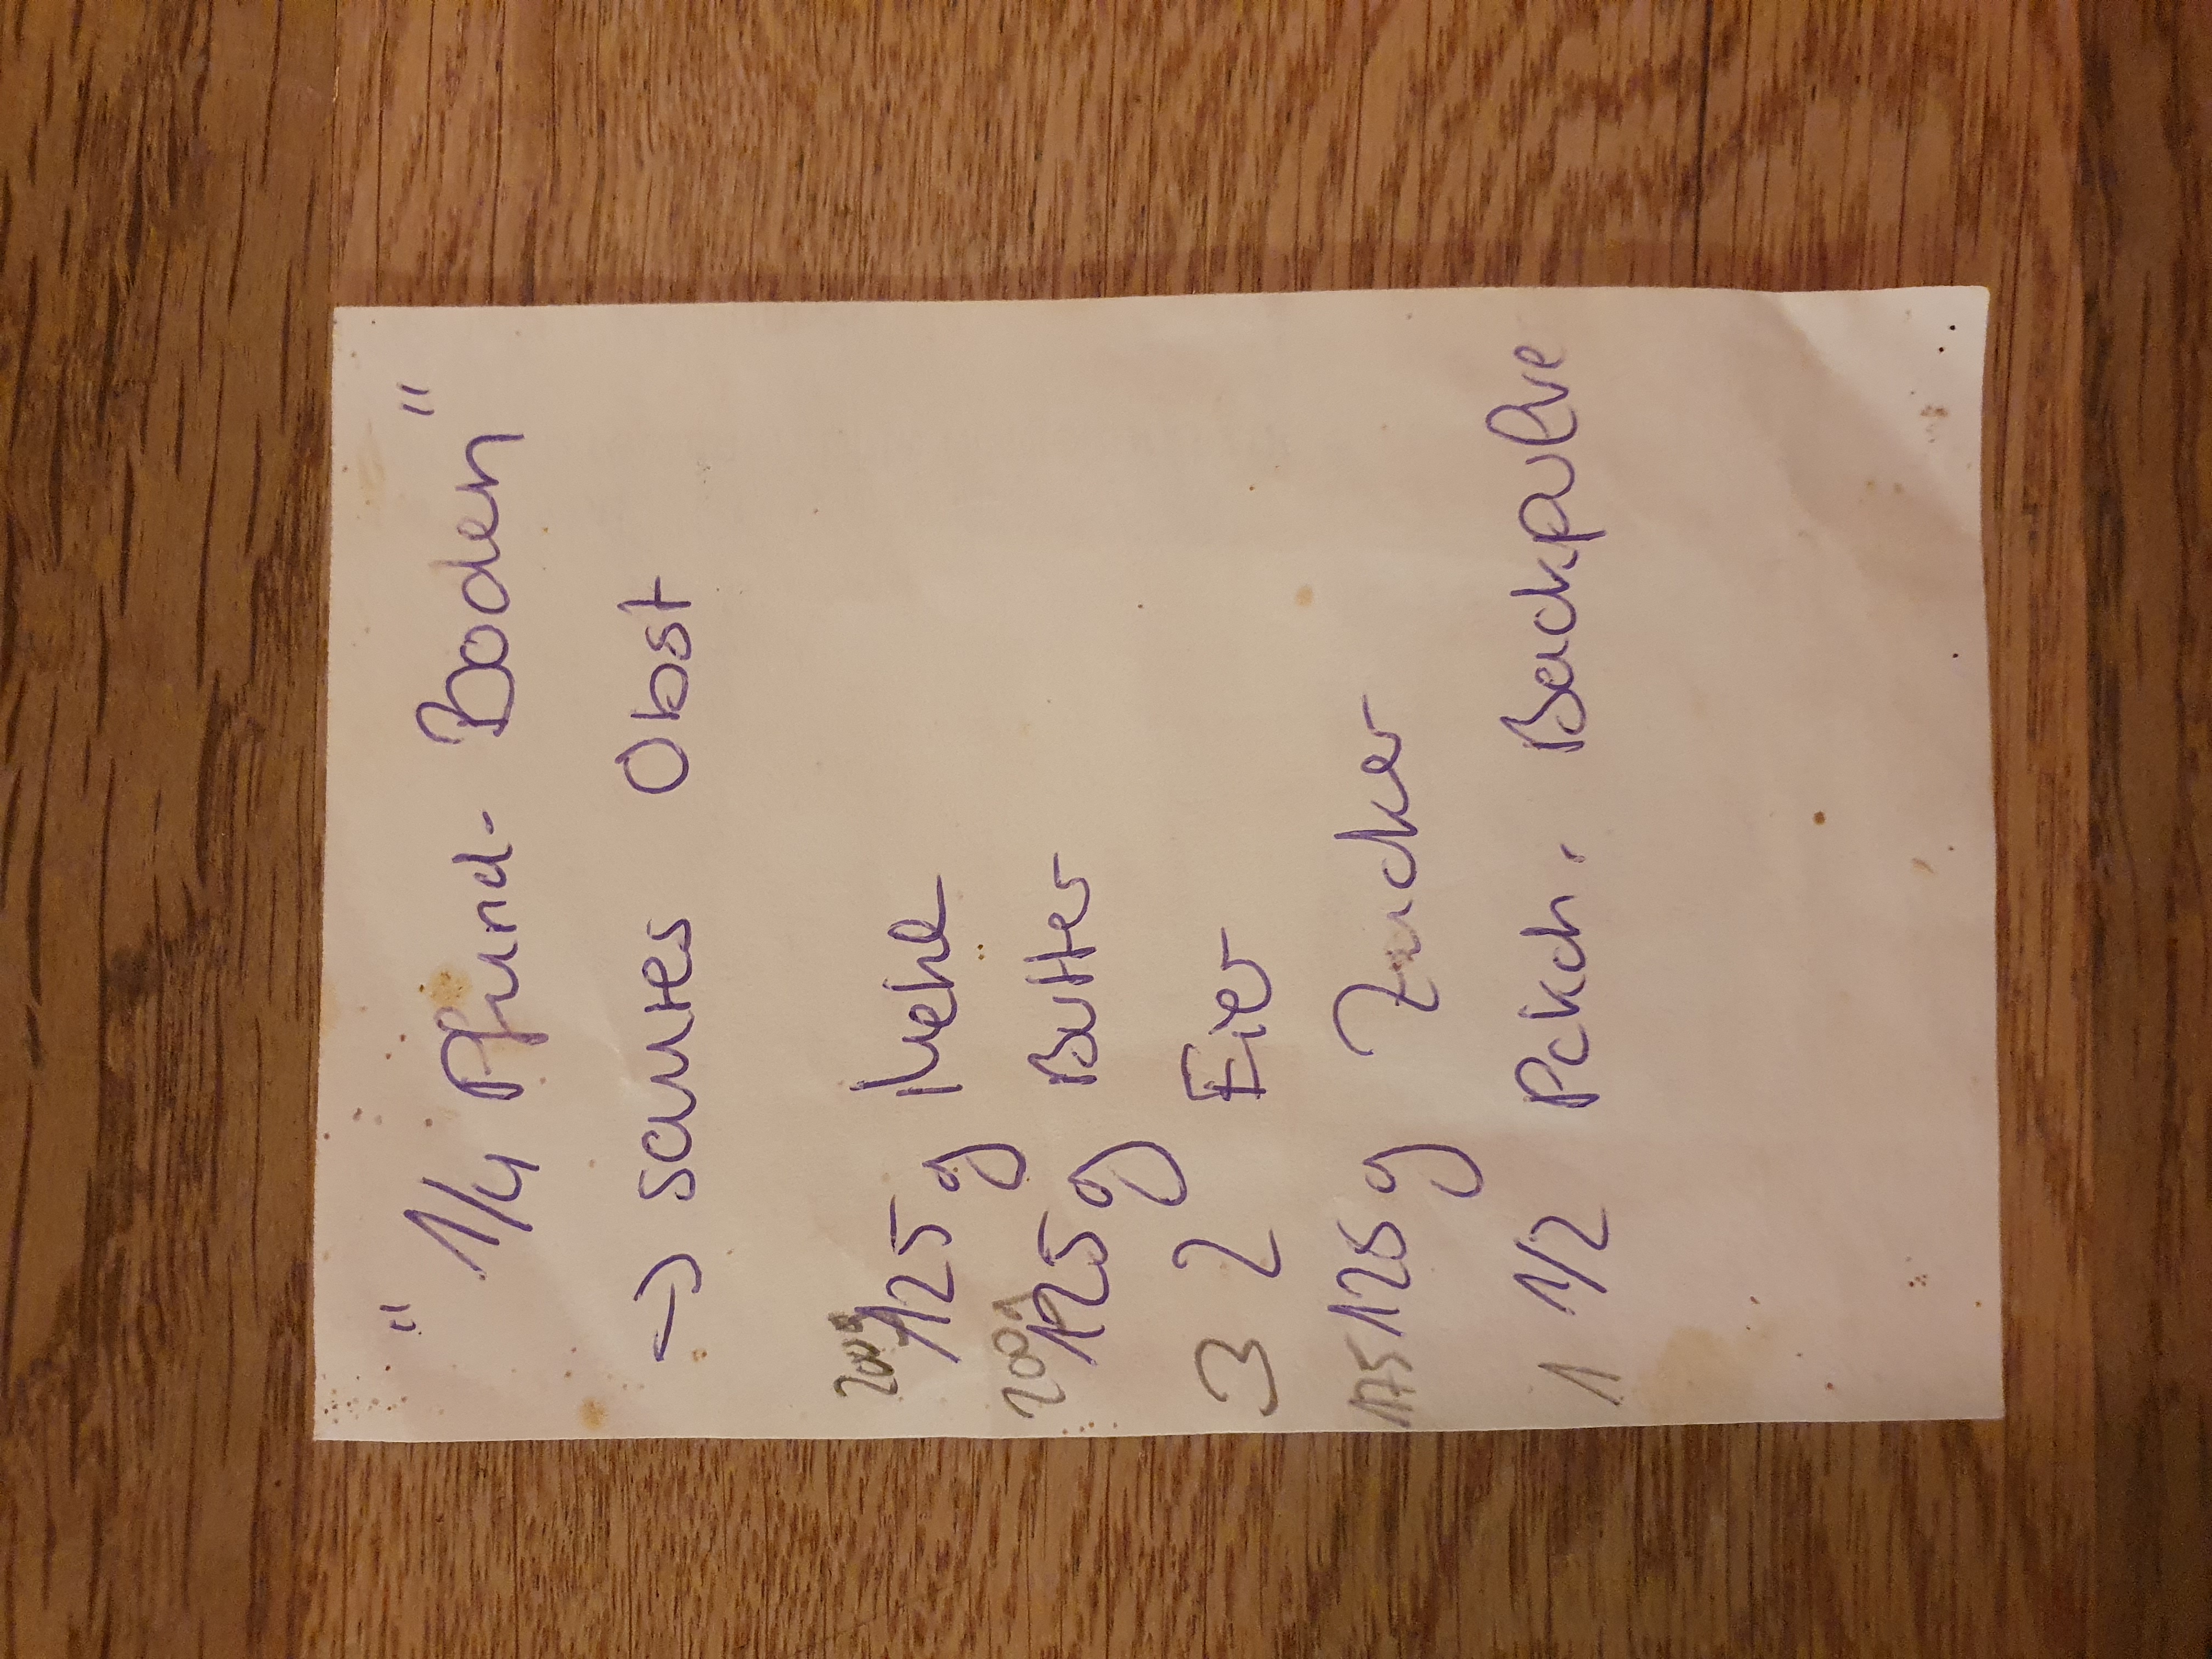 " 1/4 Pfund- Boden "
→ saures Obst
200g 125 g Mehl
200g 125 g Butter
3 2 Eier
175 125 g Zucker
1 1/2 Pckch. Backpulve